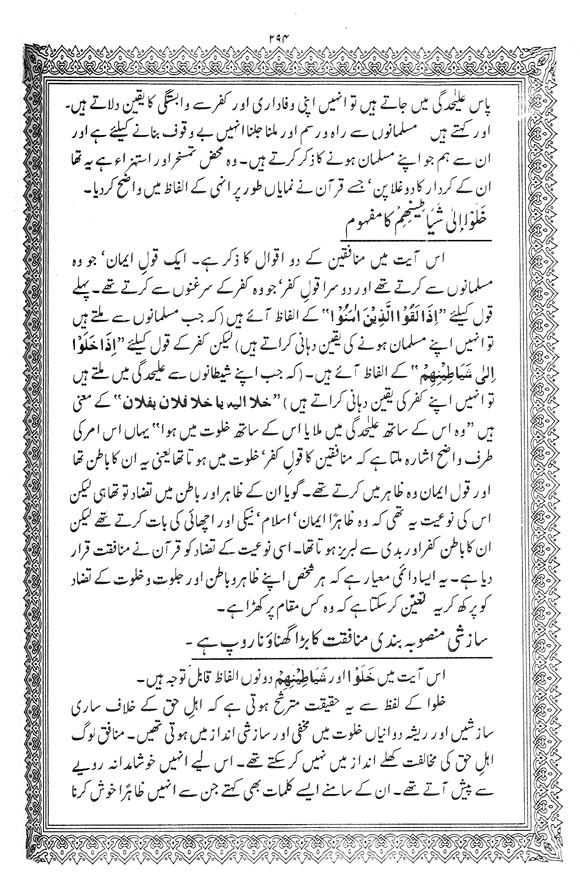 ۲۹۴
پاس علیٰحدگی میں جاتے ہیں تو انہیں اپنی وفاداری اور کفر سے وابستگی کا یقین دلاتے ہیں۔
اور کہتے ہیں مسلمانوں سے راہ و رسم اور ملنا جلنا انہیں بے وقوف بنانے کیلئے ہے اور
ان سے ہم جو اپنے مسلمان ہونے کا ذکر کرتے ہیں۔ وہ محض تمسخر اور استہزاء ہے یہ تھا
ان کے کردار کا دوغلا پن‘ جسے قرآن نے نمایاں طور پر انہی کے الفاظ میں واضح کر دیا۔
خَلَوْا اِلٰی شَیَاطِیْنِهِمْ کا مفہوم
اس آیت میں منافقین کے دو اقوال کا ذکر ہے۔ ایک قولِ ایمان‘ جو وہ
مسلمانوں سے کرتے تھے اور دوسرا قولِ کفر‘ جو وہ کفر کے سرغنوں سے کرتے تھے۔ پہلے
قول کیلئے ”اِذَا لَقُوْا الَّذِیْنَ اٰمَنُوْا“ کے الفاظ آئے ہیں (کہ جب مسلمانوں سے ملتے ہیں
تو انہیں اپنے مسلمان ہونے کی یقین دہانی کراتے ہیں) لیکن کفر کے قول کیلئے ”اِذَا خَلَوْا
اِلٰی شَیَاطِیْنِهِمْ“ کے الفاظ آئے ہیں۔ (کہ جب اپنے شیطانوں سے علیحدگی میں ملتے ہیں
تو انہیں اپنے کفر کی یقین دہانی کراتے ہیں) ”خلا الیہ یا خلا فلان بفلان“ کے معنی
ہیں ”وہ اس کے ساتھ علیحدگی میں ملا یا اس کے ساتھ خلوت میں ہوا“ یہاں اس امر کی
طرف واضح اشارہ ملتا ہے کہ منافقین کا قولِ کفر‘ خلوت میں ہوتا تھا یعنی یہ ان کا باطن تھا
اور قول ایمان وہ ظاہر میں کرتے تھے۔ گویا ان کے ظاہر اور باطن میں تضاد تو تھا ہی لیکن
اس کی نوعیت یہ تھی کہ وہ ظاہراً ایمان‘ اسلام‘ نیکی اور اچھائی کی بات کرتے تھے لیکن
ان کا باطن کفر اور بدی سے لبریز ہوتا تھا۔ اسی نوعیت کے تضاد کو قرآن نے منافقت قرار
دیا ہے۔ یہ ایسا دائمی معیار ہے کہ ہر شخص اپنے ظاہر و باطن اور جلوت و خلوت کے تضاد
کو پرکھ کر یہ تعیّن کر سکتا ہے کہ وہ کس مقام پر کھڑا ہے۔
سازشی منصوبہ بندی منافقت کا بڑا گھناؤنا روپ ہے۔
اس آیت میں خَلَوْا اور شَیَاطِیْنِهِمْ دونوں الفاظ قابل توجہ ہیں۔
خلوا کے لفظ سے یہ حقیقت مترشح ہوتی ہے کہ اہلِ حق کے خلاف ساری
سازشیں اور ریشہ دوانیاں خلوت میں مخفی اور سازشی انداز میں ہوتی تھیں۔ منافق لوگ
اہلِ حق کی مخالفت کھلے انداز میں نہیں کر سکتے تھے۔ اس لیے انہیں خوشامدانہ رویے
سے پیش آتے تھے۔ ان کے سامنے ایسے کلمات بھی کہتے جن سے انہیں ظاہراً خوش کرنا